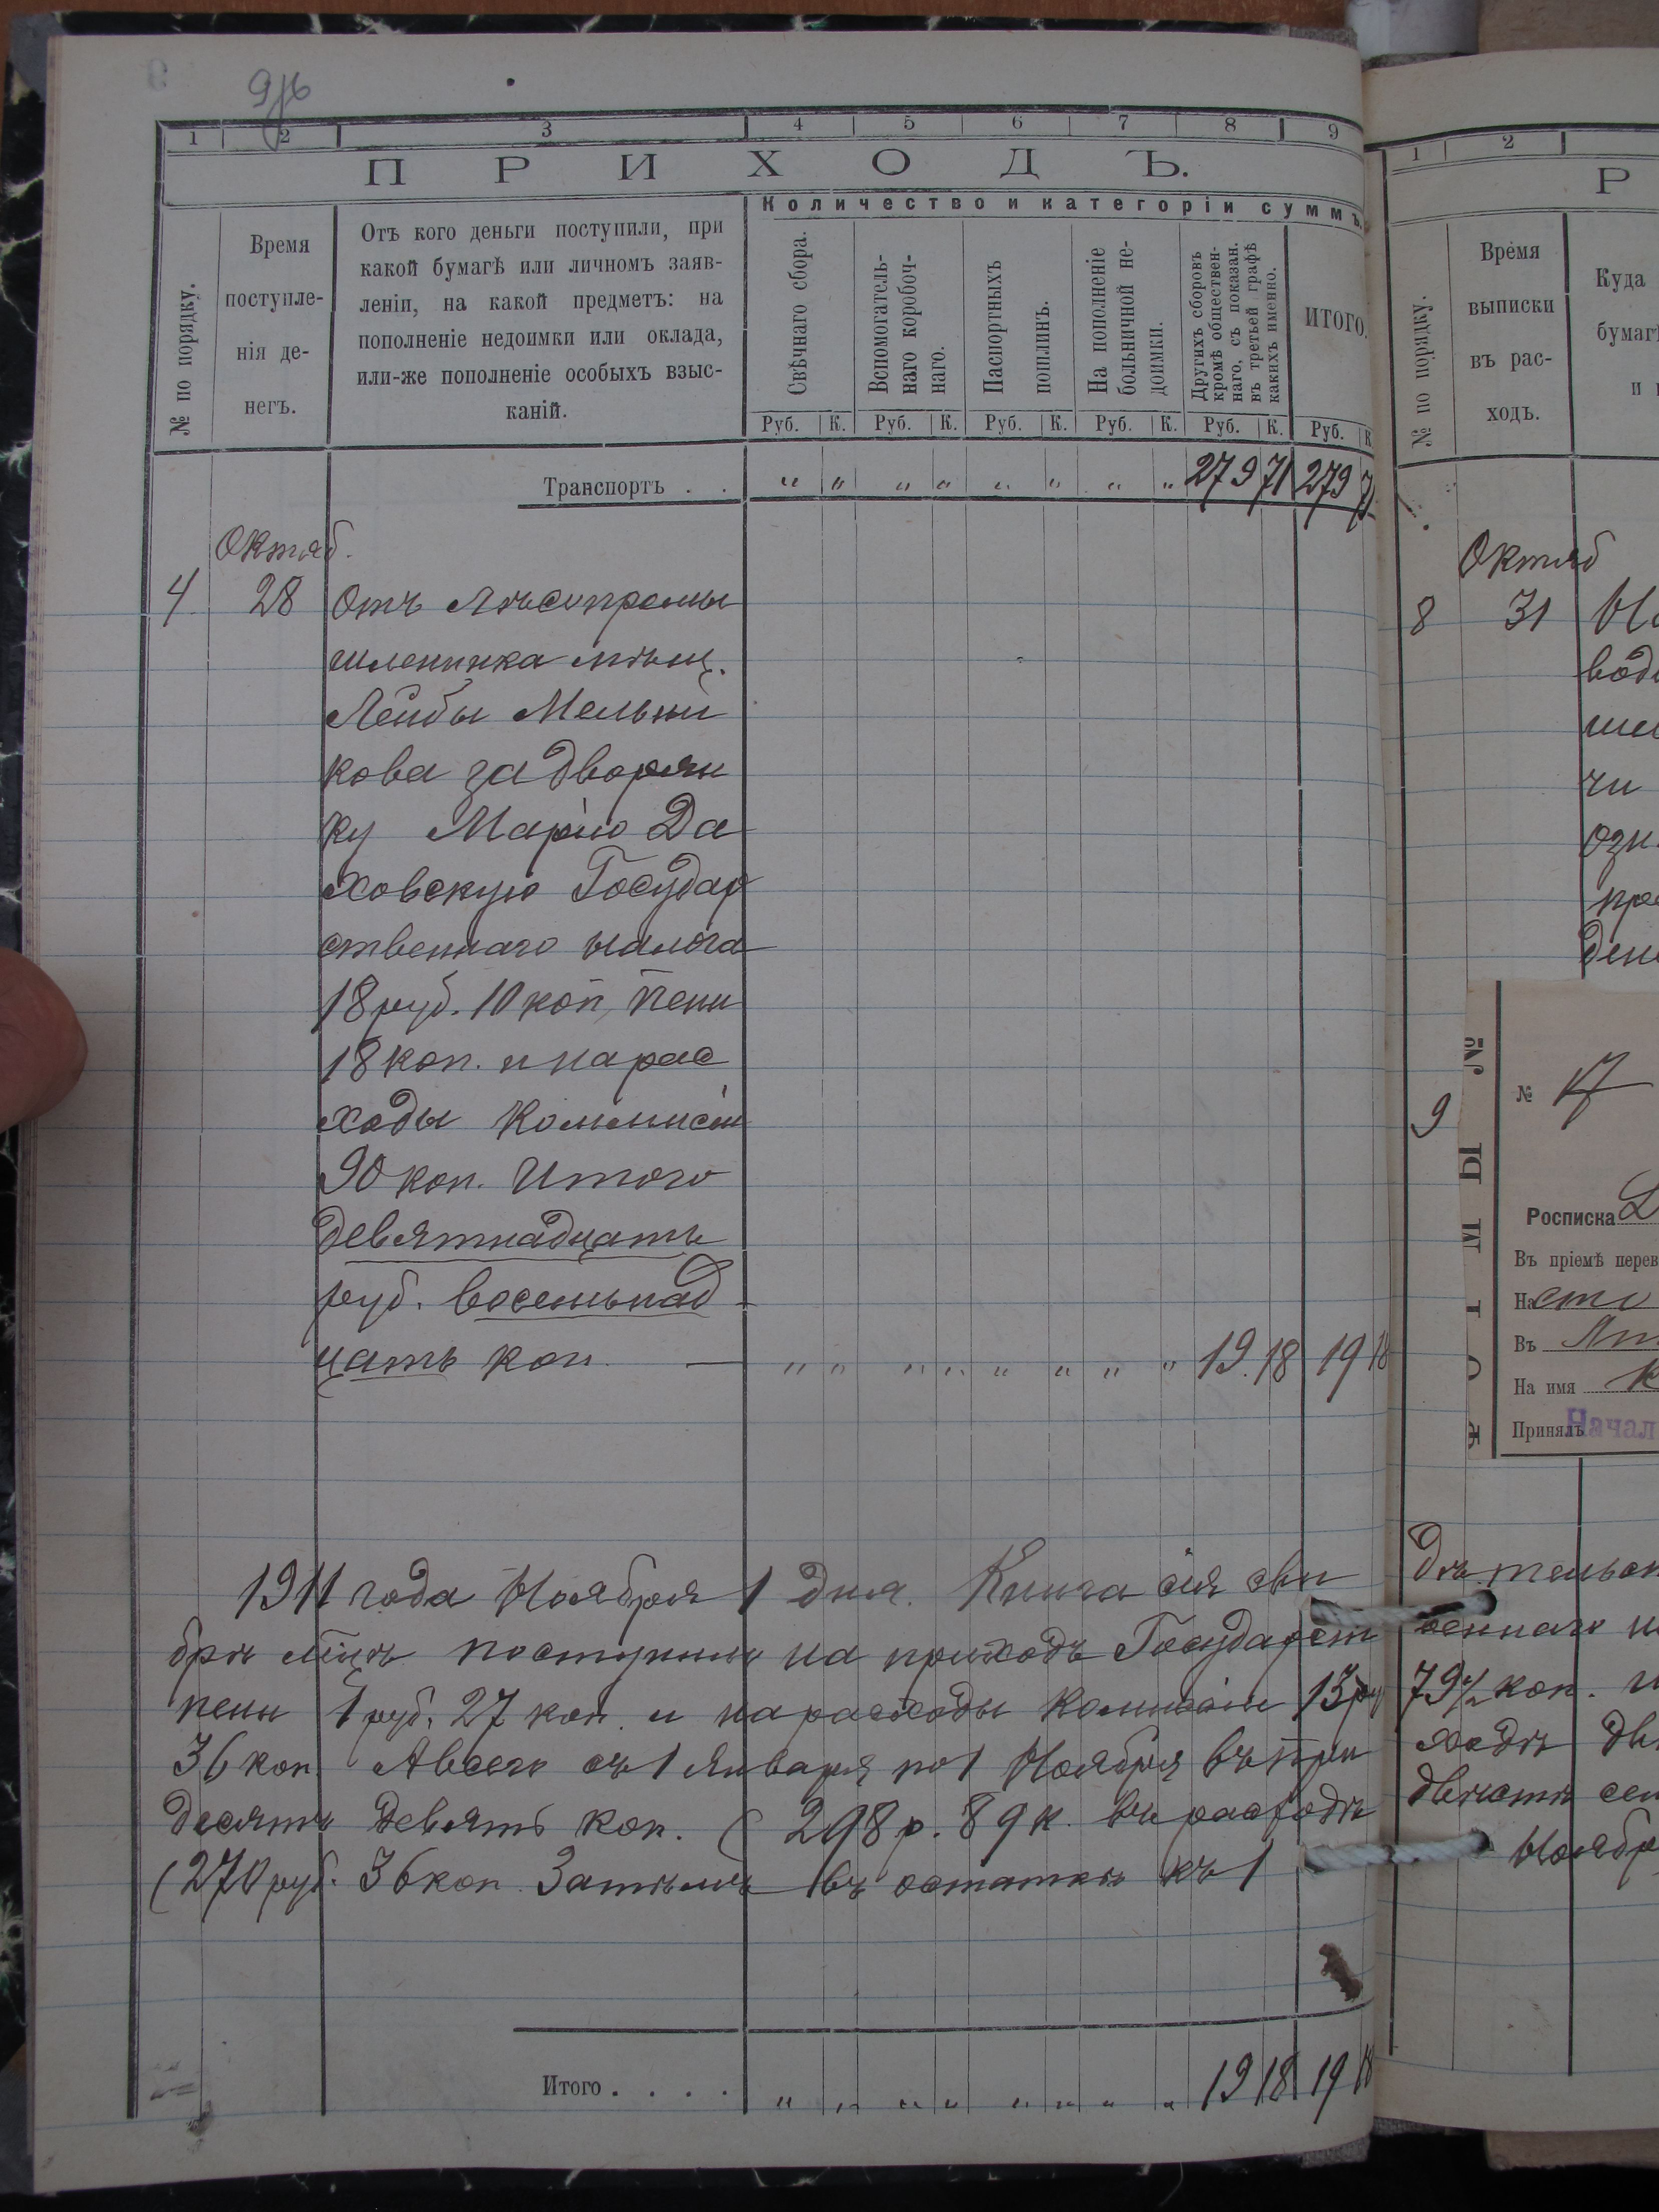 9/б
1 2 3 4 5 6 7 8 9
ПРИХОДЪ.
№ по порядку.
Время
поступле-
нія де-
негъ.
Отъ кого деньги поступили, при
какой бумагѣ или личномъ заяв-
леніи, на какой предметъ: на
пополненіе недоимки или оклада,
или-же пополненіе особыхъ взыс-
каній.
Количество и категоріи суммъ.
Свѣчнаго сбора.
Вспомогатель-
наго коробоч-
наго.
Паспортныхъ
пошлинъ.
На пополненіе
больничной не-
доимки.
Другихъ сборовъ
кромѣ обществен-
наго, съ показан.
въ третьей графѣ
какихъ именно.
ИТОГО.
Руб. К. Руб. К. Руб. К. Руб. К. Руб. К. Руб. К
Транспортъ . . „ „ „ „ „ „ „ „ 279 71 279 71
Октяб.
4 28 Отъ Лѣсопромы
шленника мѣщ.
Лейбы Мельни
кова за дворян
ку Марію Да
ховскую Государ
ственнаго налога
18 руб. 10 коп, пени
18 коп. и на рас
ходы Коммисіи
90 коп. Итого
девятнадцать
руб. восемьнад
цать коп. — „ „ „ „ „ „ „ „ 19.18 19 18
1911 года Ноября 1 дня. Книга сія сви
брѣ м-цѣ поступило на приходъ Государст
пени 1 руб. 27 коп. и на расходы Коммисіи 13 ру
36 коп. А всего съ 1 Января по 1 Ноября въ при
десятъ девять коп. ( 298 р. 89 к. въ расходѣ
(270 руб. 36 коп. Затѣмъ въ остаткѣ къ 1
Итого . . . . „ „ „ „ „ „ „ „ 19 18 19 18
1 2
Р
№ по порядку.
Время
выписки
въ рас-
ходъ.
Куда
бумаг
и
Октяб
8 31
вод
ше
чи
озн.
пре
ден
9
№ 17
Росписка
Въ пріемѣ перев
На сто
Въ
На имя
Принялъ
Начал
дѣтельств
веннаго н
79½ коп. и
ходѣ дв
двѣсти сем
Ноябр